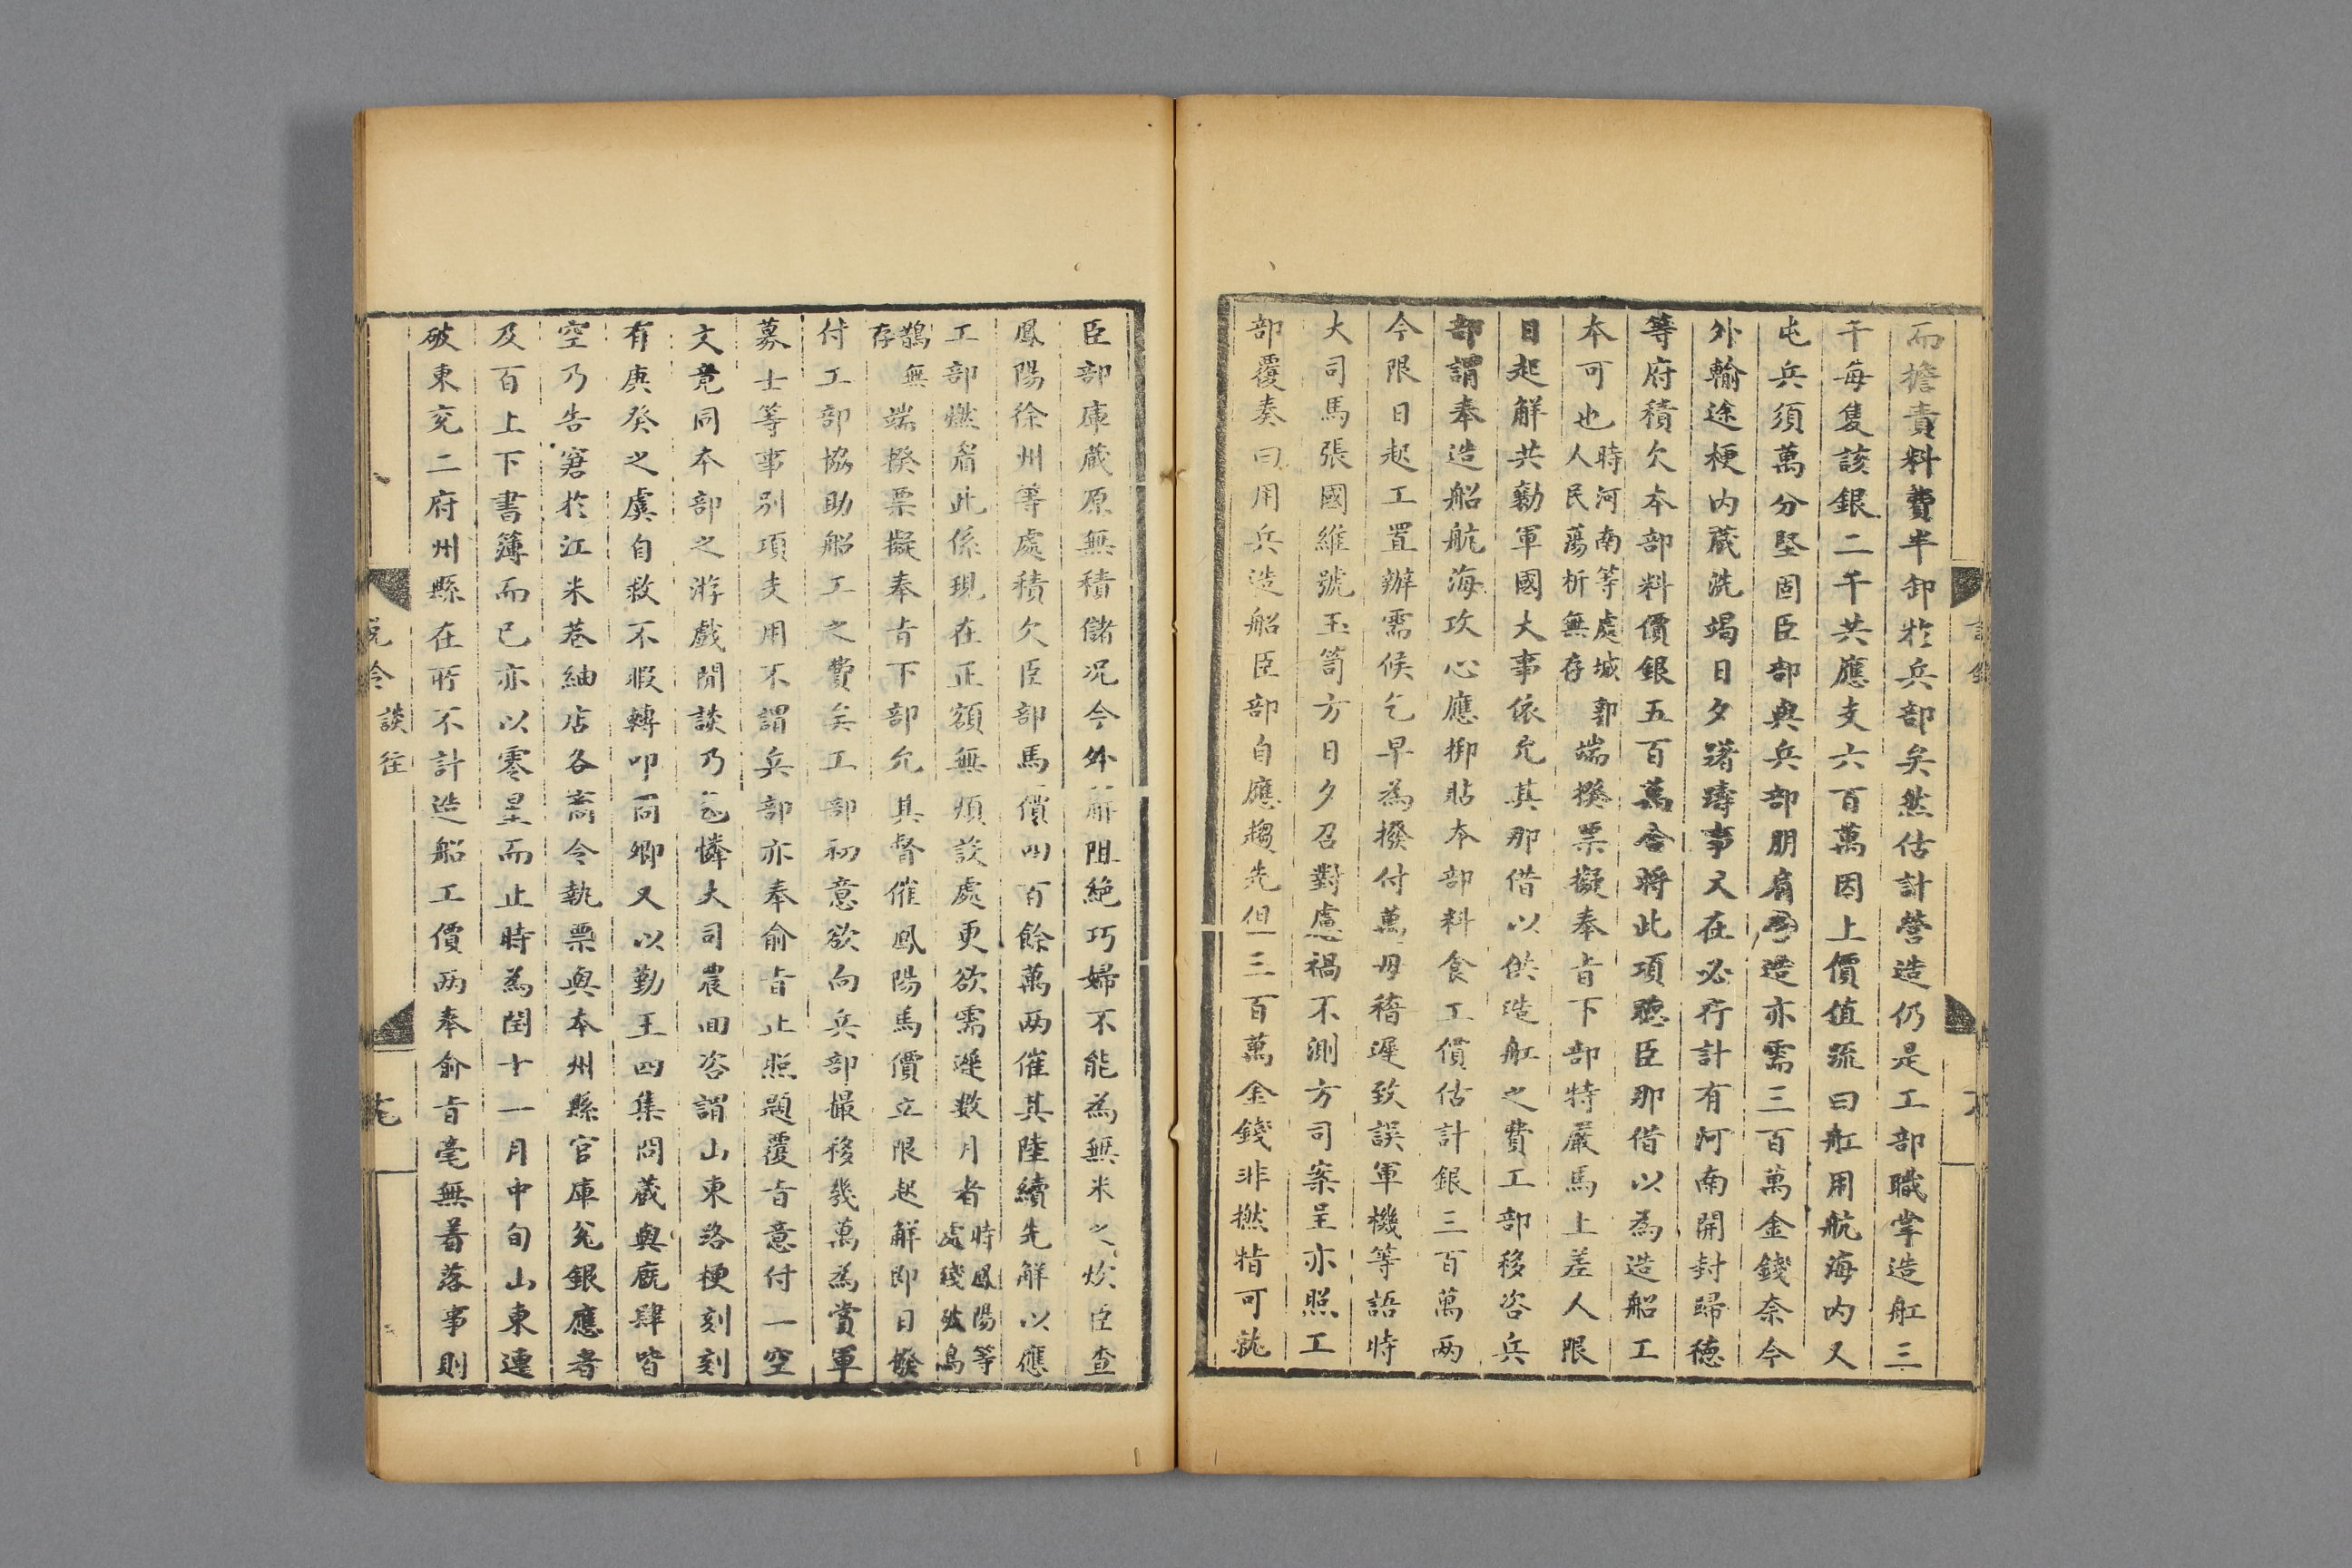 而擔責料費半卸於兵部矣然估計營造仍是工部職掌造舡三
千每隻該銀二千共應支六百萬因上價值疏曰舡用航海內又
屯兵須萬分堅固臣部與兵部朋肩造亦需三百萬金錢奈今
外輸途梗內蔵洗竭日夕躊事又在必行計有河南開封歸德
等府積欠本部料價銀五百萬合將此項聽臣那借以為造船工
本可也時河南等處城郭人民蕩析無存端揆票擬奉旨下部特嚴馬上差人限
日起解共勷軍國大事依允其那借以供造舡之費工部移咨兵
部謂奉造船航海攻心應捓貼本部料食工價估計銀三百萬两
今限日起工置辦需候乞早為撥付萬毋稽遲致誤軍機等語時
大司馬張國維號玉笥方日夕召對慮禍不測方司案呈亦照工
部覆奏曰用兵造船臣部自應趨先但三百萬金錢非撚指可就
臣部庫蔵原無積儲況今外解阻絶巧婦不能為無米之炊臣查
鳳陽徐州等處積欠臣部馬價四百餘萬两催其陸續先解以應
工部燃眉此係現在正額無煩設處更欲需遲數月者時鳳陽等處殘破烏
鵲無存端揆票擬奉旨下部允其督催鳳陽馬價立限起解即日撥
付工部協助船工之費矣工部初意欲向兵部撮移幾萬為賞軍
募士等事别項支用不謂兵部亦奉俞旨止照題覆旨意付一空
文竟同本部之游戲閒談乃乞憐大司農回咨謂山東路梗刻刻
有庚癸之虞自救不暇轉叩冏卿又以勤王四集問蔵與廐肆皆
空乃告窘於江米巷紬店各商令執票與本州縣官庫兌銀應者
及百上下書簿而已亦以零星而止時為閏十一月中旬山東連
破東兖二府州縣在所不計造船工價两奉俞旨毫無着落事則
談往